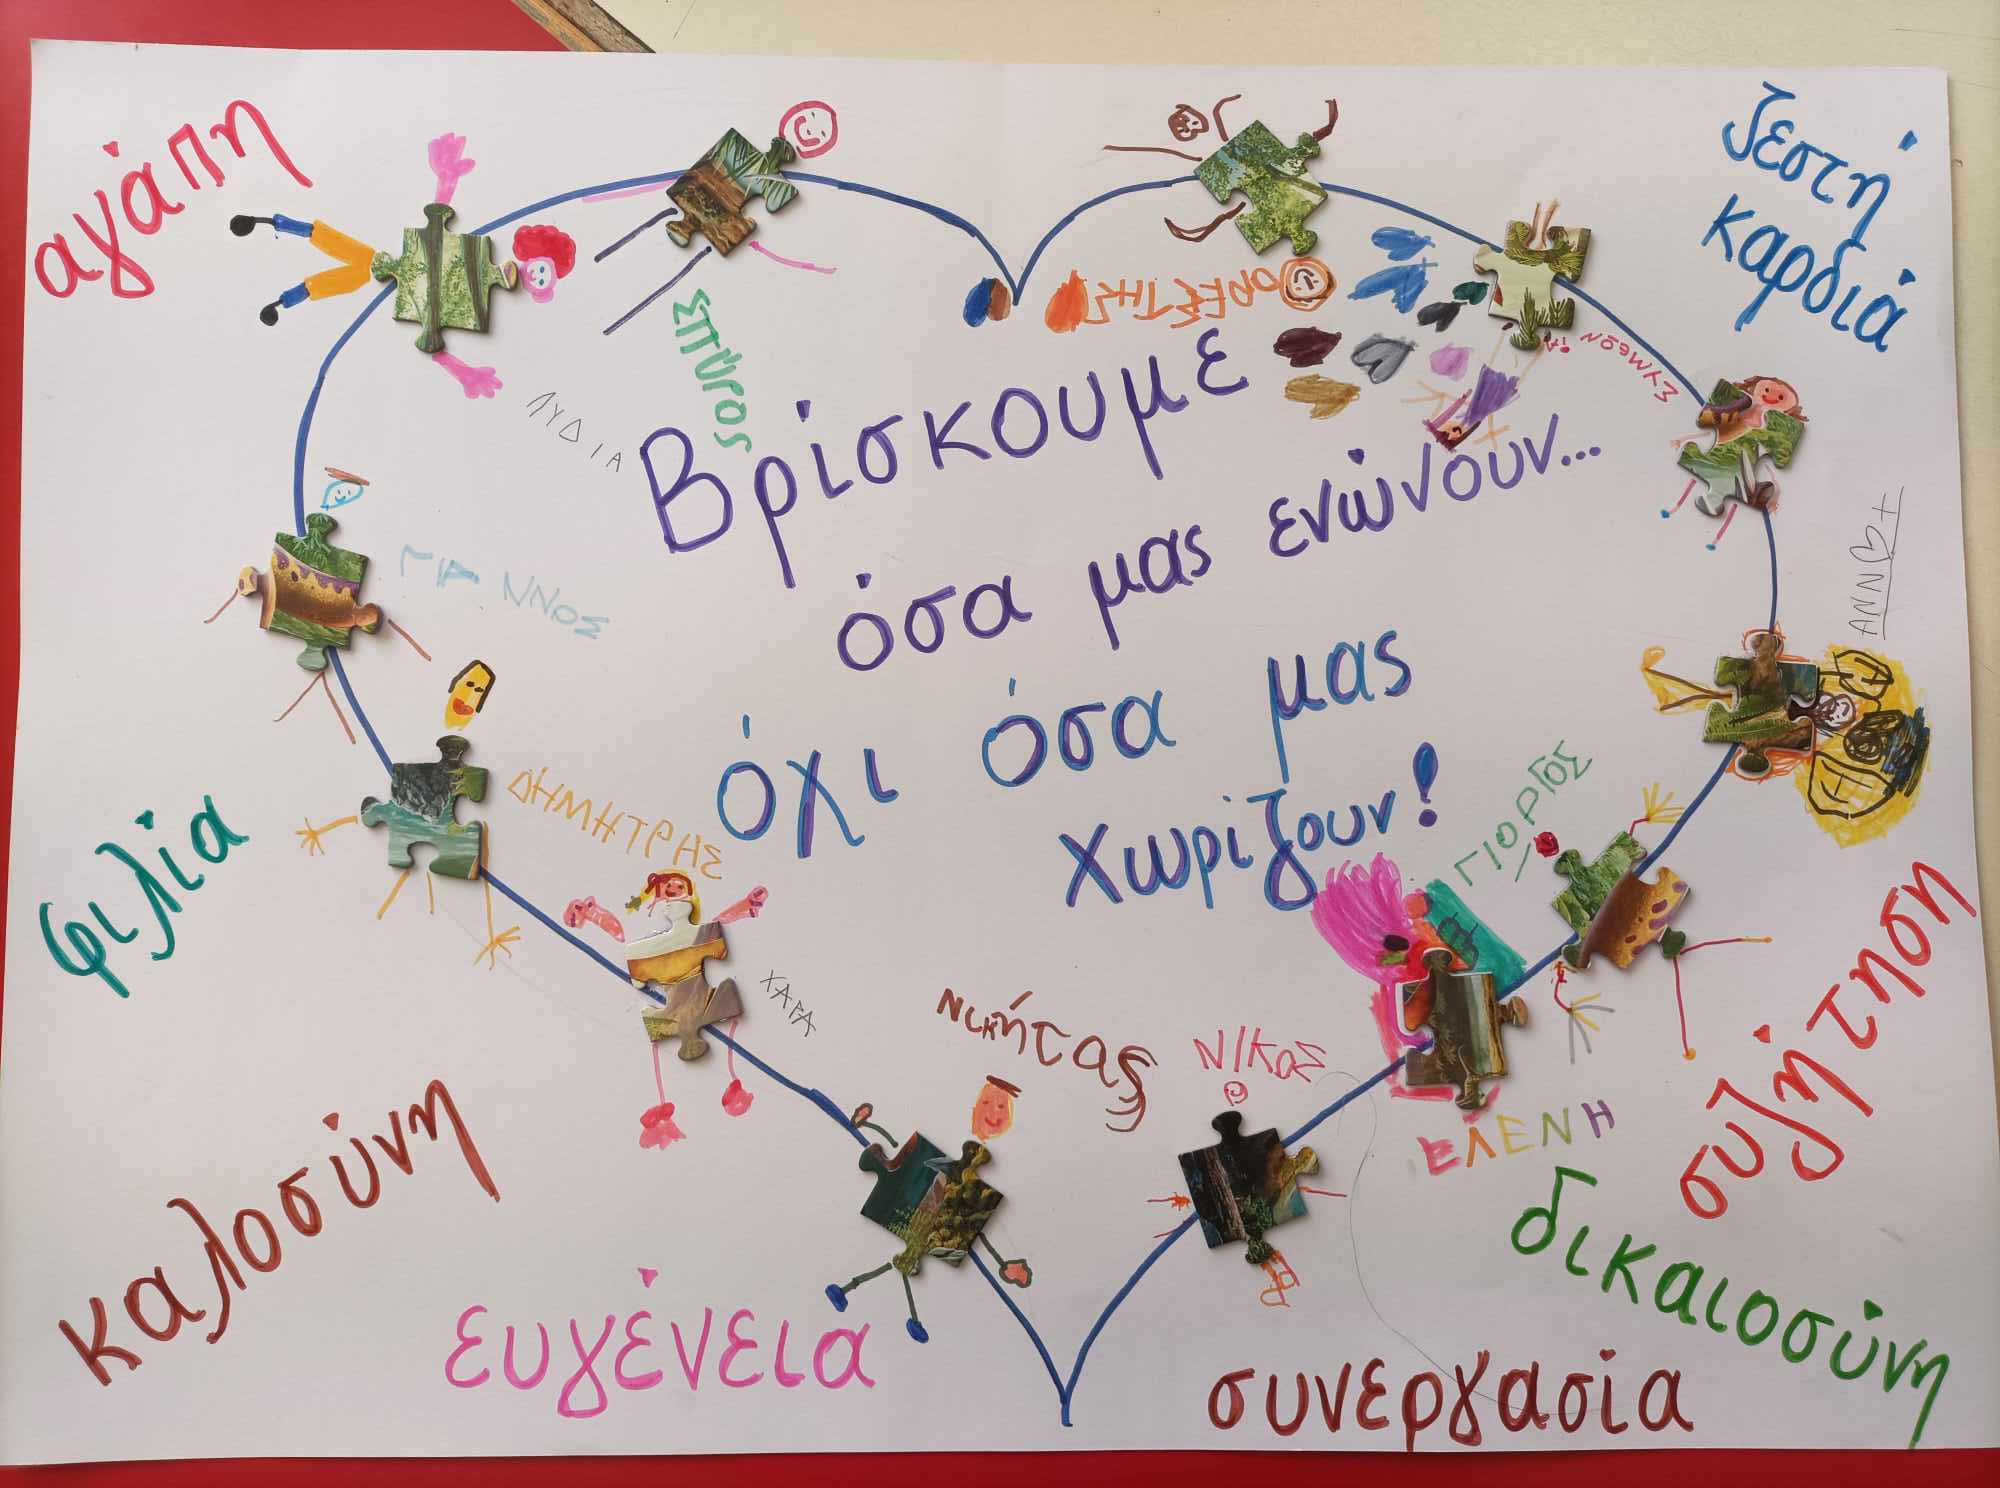 αγάπη
ζεστή
καρδιά
ΣΠΥΡΟΣ
ΟΡΕΣΤΗΣ
ΛΥΔΙΑ
Βρίσκουμε
όσα μας ενώνουν...
όχι όσα μας
χωρίζουν!
ΓΙΑΝΝΟΣ
ΑΝΝ
ΔΗΜΗΤΡΗΣ
ΓΙΟΡΓΟΣ
φιλία
ΧΑΡΑ
Νικήτας
ΝΙΚΟΣ
ΕΛΕΝΗ
συζήτηση
καλοσύνη
δικαιοσύνη
ευγένεια
συνεργασία